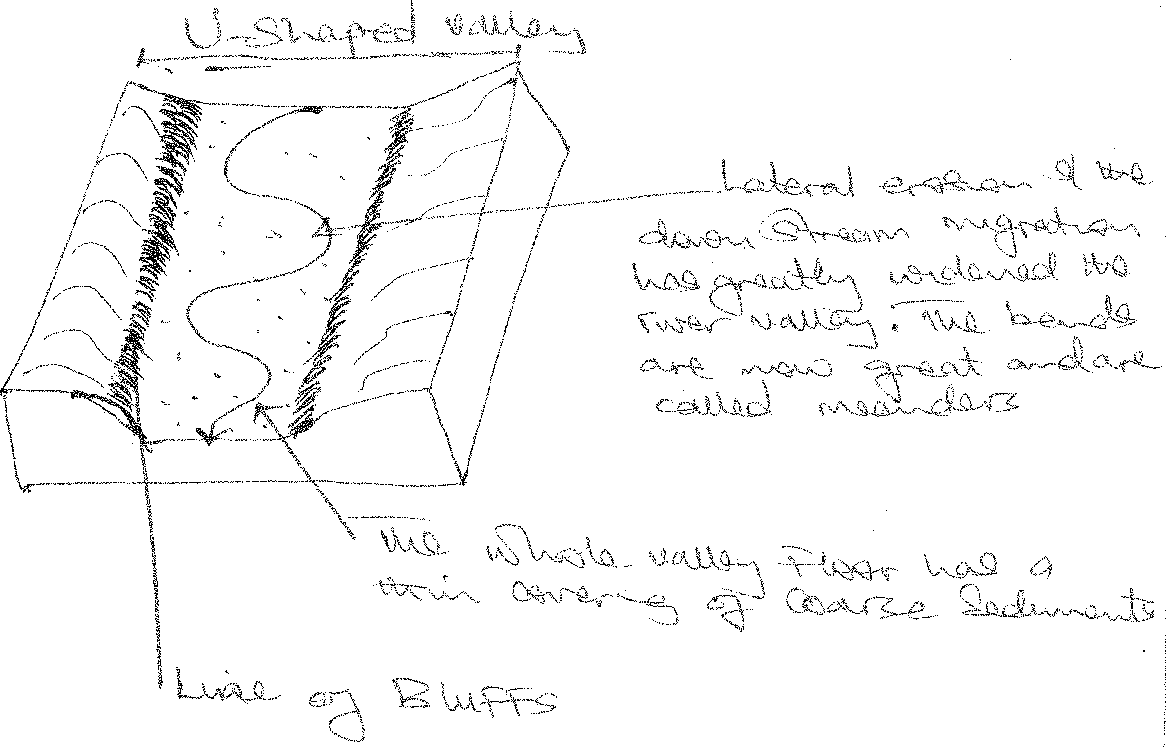 U-Shaped valley
Lateral erosion & the
down Stream migration
has greatly widened the
river valley. The bends
are now great and are
called meanders
The whole valley Floor has a
thin covering of Coarse Sediments.
Line of BLUFFS